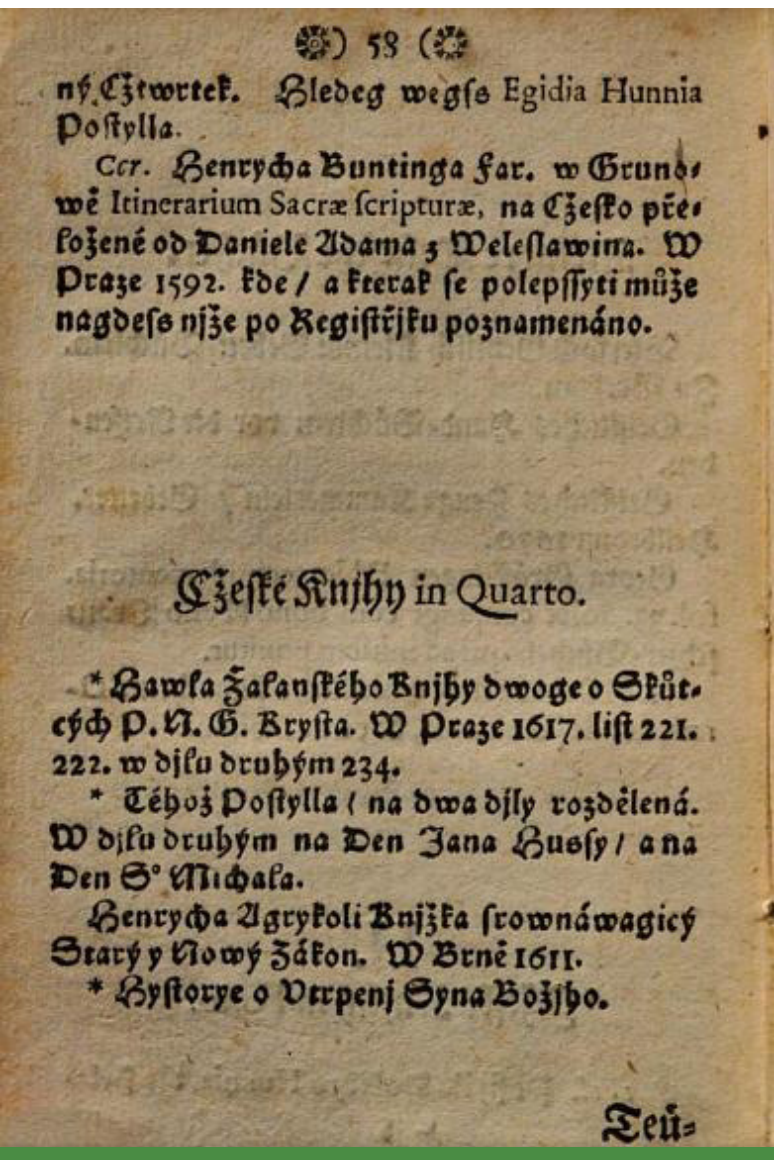 ) 58 (
ný Cžtwrtek. Hledeg wegſs Egidia Hunnia
Poſtylla.
Ccr. Henrycha Buntinga Far. w Grun⸗
wě Itinerarium Sacræ ſcripturæ, na Cžeſko pře⸗
ložené od Daniele Adama z Weleſlawina. W
Praze 1592. kde / a kterak ſe polepſſyti může
nagdeſs njže po Regiſtřjku poznamenáno.
Cžeſké Knjhy in Quarto.
* Hawla Žalanſkého Knjhy dwoge o Skůt⸗
cých P. N. G. Kryſta. W Praze 1617. liſt 221.
222. w djlu druhým 234.
* Téhož Poſtylla / na dwa djly rozdělená.
W djlu druhým na Den Jana Husſy / a na
Den S° Michala.
Henrycha Agrykoli Knjžka ſrownáwagicý
Starý y Nowý Zákon. W Brně 1611.
* Hyſtorye o Vtrpenj Syna Božjho.
Teú⸗